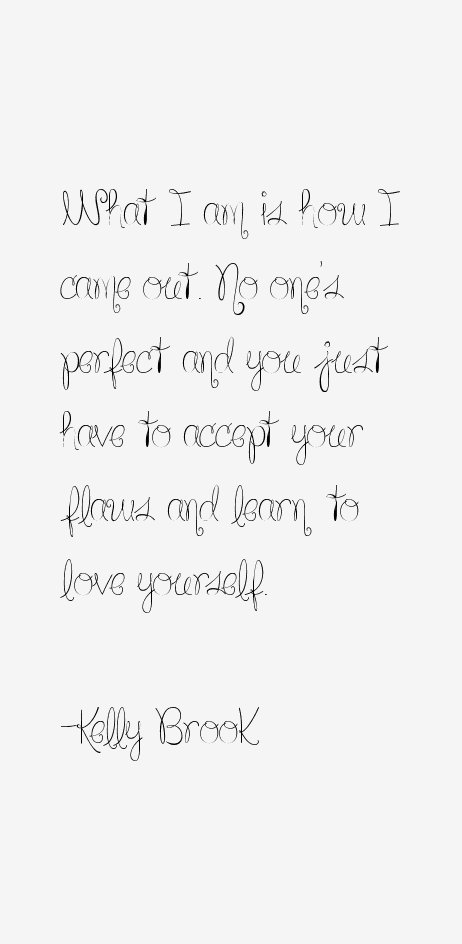 What I am is how I
came out. No one's
perfect and you just
have to accept your
flaws and learn to
love yourself.
-Kelly Brook